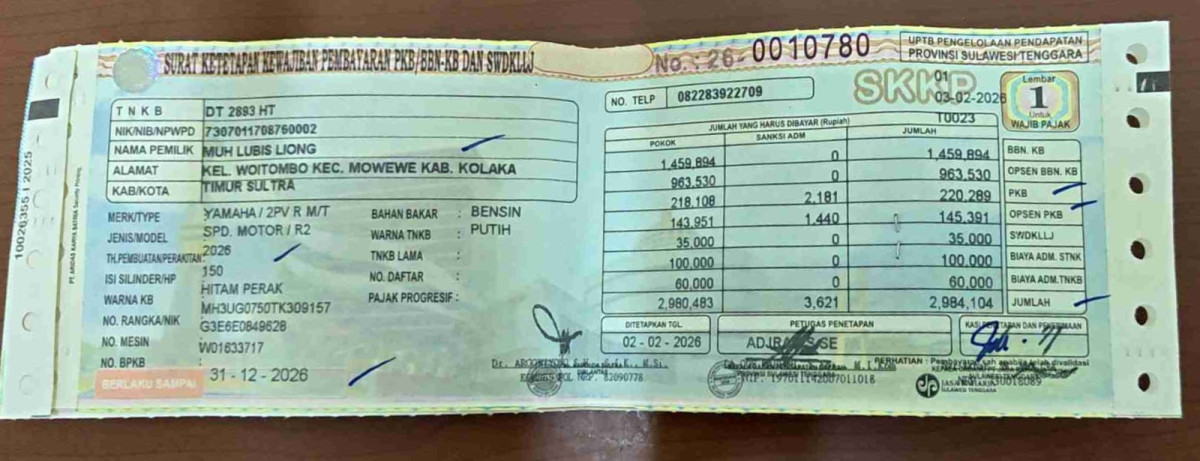 SURAT KETETAPAN KEWAJIBAN PEMBAYARAN PKB/BBN-KB DAN SWDKLLJ
No.: 26- 0010780
UPTB PENGELOLAAN PENDAPATAN
PROVINSI SULAWESI TENGGARA
SKKP
01
03-02-2026
T0023
Lembar
1
Untuk
WAJIB PAJAK
NO. TELP 082283922709
T N K B DT 2893 HT
NIK/NIB/NPWPD 7307011708760002
NAMA PEMILIK MUH LUBIS LIONG
ALAMAT KEL. WOITOMBO KEC. MOWEWE KAB. KOLAKA
KAB/KOTA TIMUR SULTRA
MERK/TYPE YAMAHA / 2PV R M/T
JENIS/MODEL SPD. MOTOR / R2
TH.PEMBUATAN/PERAKITAN: 2026
ISI SILINDER/HP 150
WARNA KB HITAM PERAK
NO. RANGKA/NIK MH3UG0750TK309157
NO. MESIN G3E6E0849628
NO. BPKB W01633717
BERLAKU SAMPAI 31 - 12 - 2026
BAHAN BAKAR : BENSIN
WARNA TNKB : PUTIH
TNKB LAMA :
NO. DAFTAR :
PAJAK PROGRESIF :
JUMLAH YANG HARUS DIBAYAR (Rupiah)
POKOK SANKSI ADM JUMLAH
1,459,894 0 1,459,894 BBN. KB
963,530 0 963,530 OPSEN BBN. KB
218,108 2,181 220,289 PKB
143,951 1,440 145,391 OPSEN PKB
35,000 0 35,000 SWDKLLJ
100,000 0 100,000 BIAYA ADM. STNK
60,000 0 60,000 BIAYA ADM.TNKB
2,980,483 3,621 2,984,104 JUMLAH
DITETAPKAN TGL. PETUGAS PENETAPAN
02 - 02 - 2026
KOMBES POL NRP. 82090778
NIP. 197011142007011018
PERHATIAN : Pembayaran sah apabila telah divalidasi
JASA RAHARJA
SULAWESI TENGGARA
10026355 I 2025